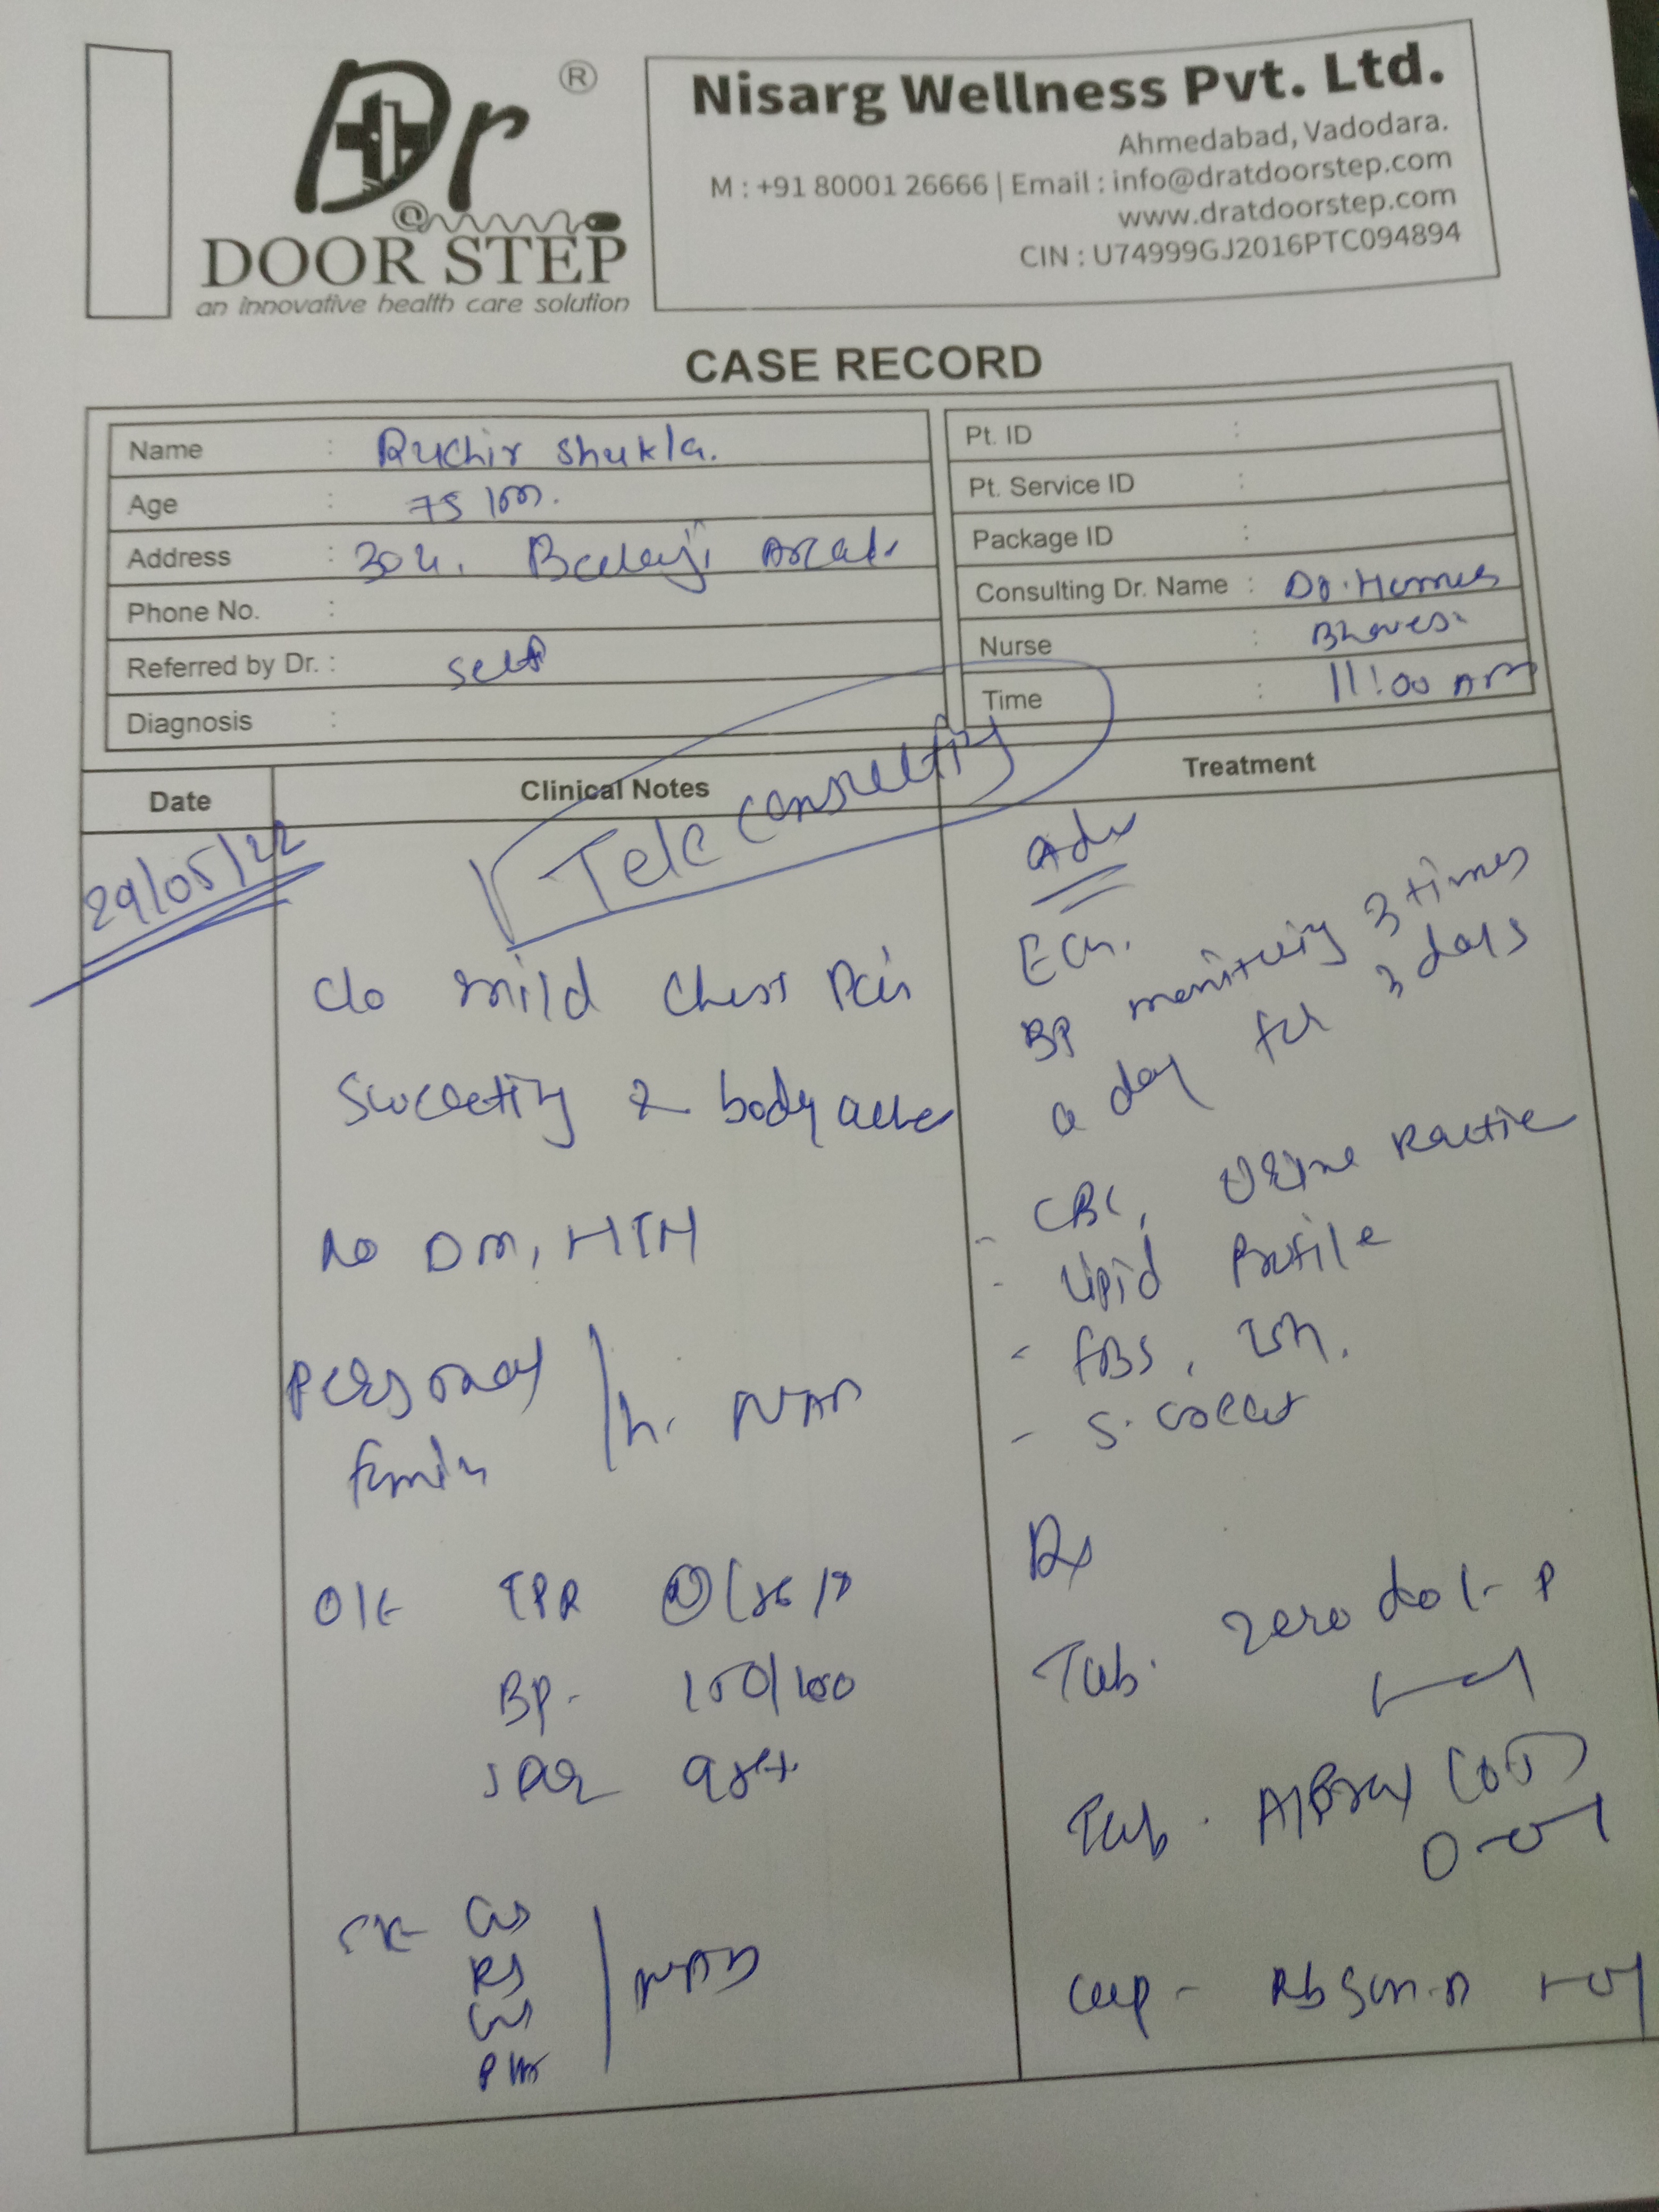 Dr
®
@
DOOR STEP
an innovative health care solution
Nisarg Wellness Pvt. Ltd.
Ahmedabad, Vadodara.
M : +91 80001 26666 | Email : info@dratdoorstep.com
www.dratdoorstep.com
CIN : U74999GJ2016PTC094894
CASE RECORD
Name : Ruchir Shukla.
Age : 75 /m.
Address : 304, Balaji
Phone No. :
Referred by Dr. : self
Diagnosis :
Pt. ID :
Pt. Service ID :
Package ID :
Consulting Dr. Name : Dr.
Nurse :
Time : 11:00 Am
Date
Clinical Notes
Treatment
29/05/22
Tele consulting
c/o mild chest Pain
Sweating & body ache
No DM, HTN
Personal
family
/h. NAD
O/E TPR
BP- 150/100
SPO2
S/E CVS
RS
CNS
P/A
NAD
Adv
ECG.
BP monitoring 3 times
a day for 3 days
- CBC, Urine Routine
- Lipid Profile
- FBS, TSH.
- S. creat
Rx
Tab. Zerodol-P
Tab.
0-0-1
Cap -